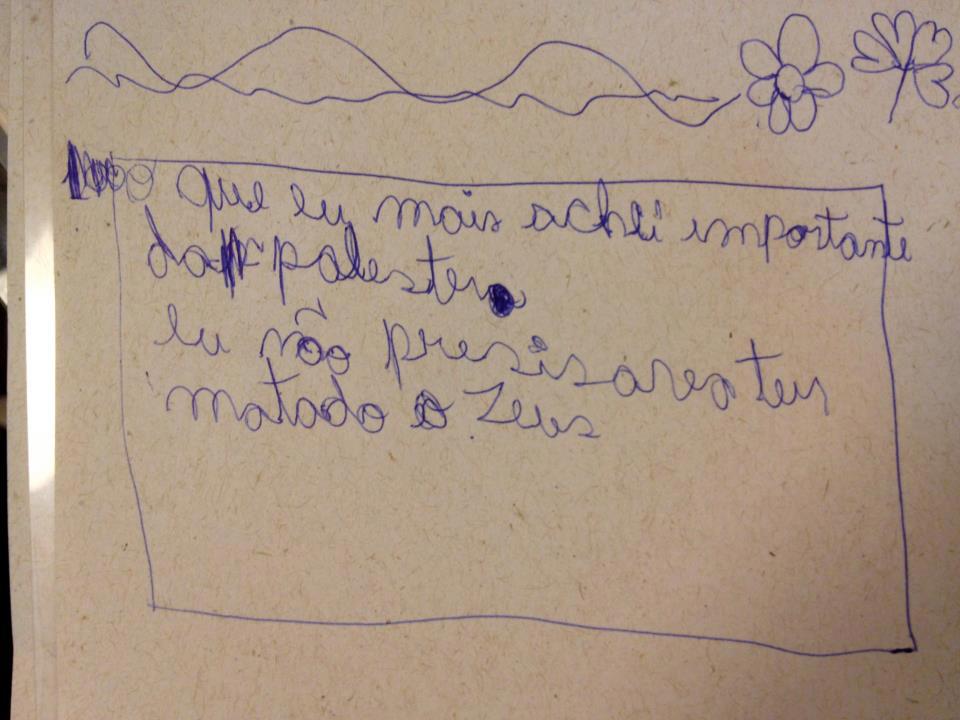 O que eu mais achei importante
da palestra
eu não presisarea ter
matado o Zeus